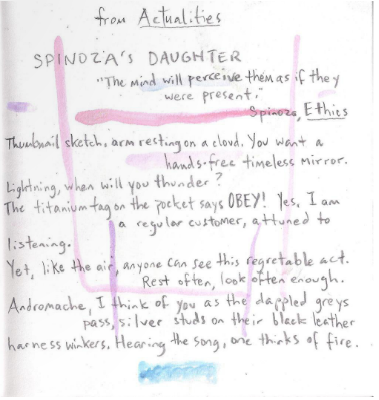 from Actualities
SPINOZA'S DAUGHTER
"The mind will perceive them as if they
were present."
Spinoza, Ethics
Thumbnail sketch, arm resting on a cloud. You want a
hands-free timeless mirror.
Lightning, when will you thunder?
The titanium tag on the pocket says OBEY! Yes, I am
a regular customer, attuned to
listening.
Yet, like the air, anyone can see this regretable act.
Rest often, look often enough.
Andromache, I think of you as the dappled greys
pass, silver studs on their black leather
harness winkers. Hearing the song, one thinks of fire.